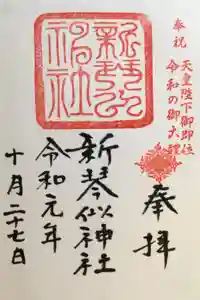 奉祝
天皇陛下御即位
令和の御大禮
奉拝
新琴似神社
令和元年
十月二十七日
新琴似神社